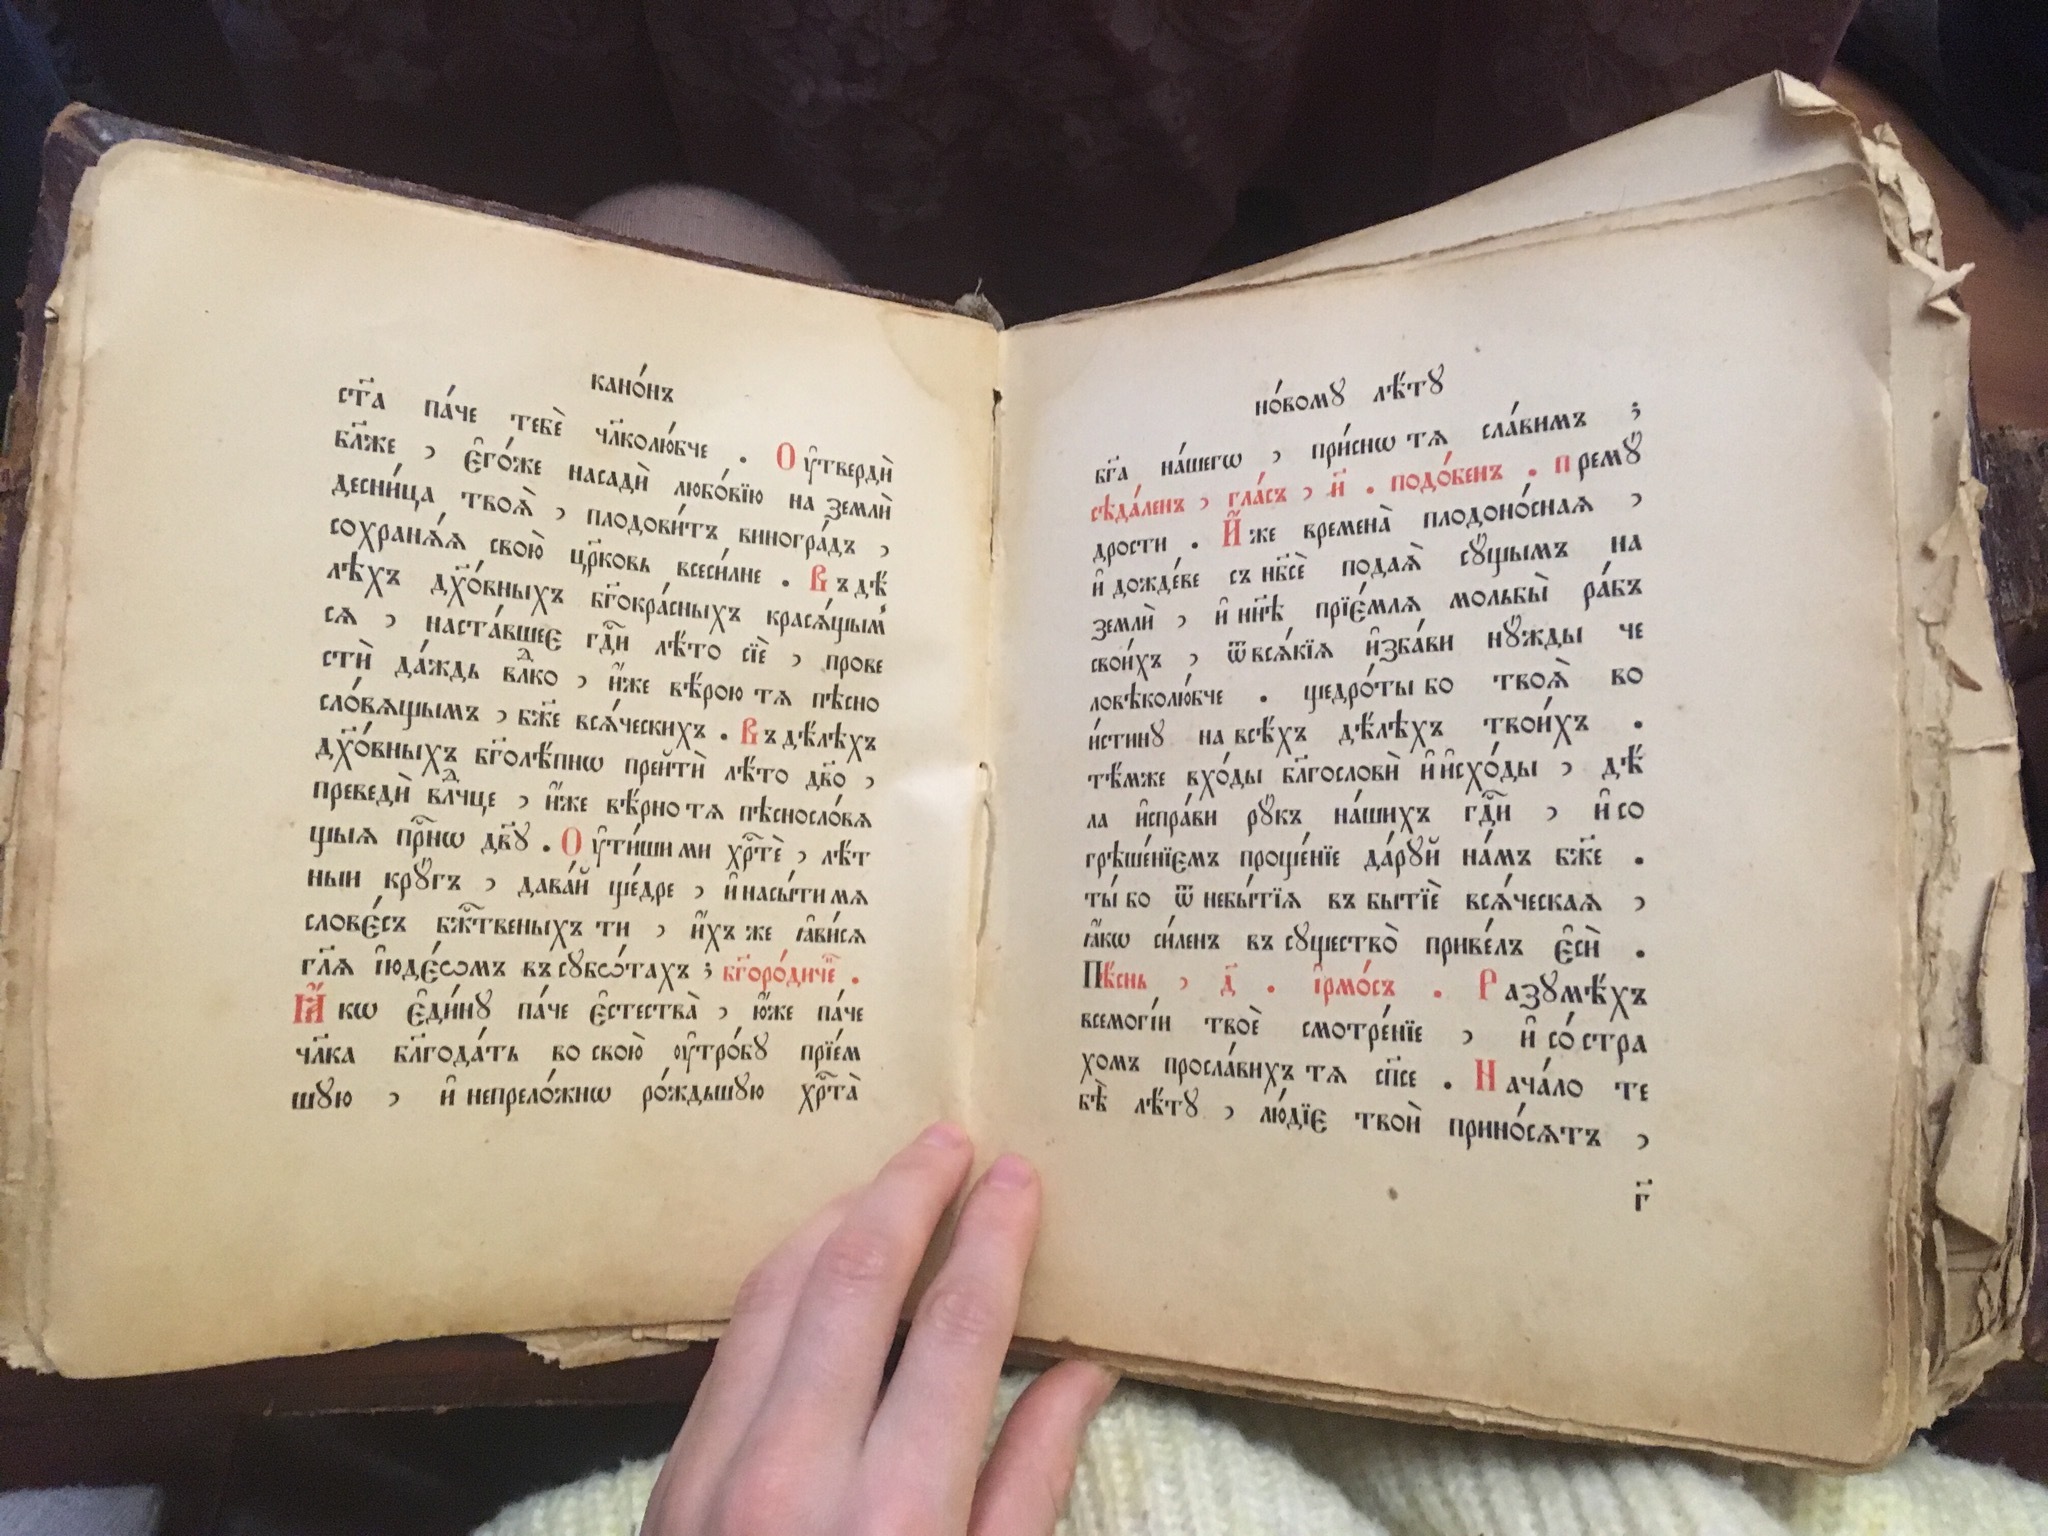 кано́нъ
ст҃а па́че тебѐ чл҃колю́бче . Оу҆твердѝ
бл҃же , є҆го́же насадѝ любо́вїю на землѝ
десни́ца твоѧ̀ , плодови́тъ виногра́дъ ,
сохранѧ́ѧ свою̀ цр҃ковь всеси́лне . Въ дѣ́
лѣхъ дх҃о́вныхъ бг҃окра́сныхъ красѧ́щым
сѧ , наста́вшее гдⷭ҇и лѣ́то сїѐ , прове
стѝ да́ждь влⷣко , и҆́же вѣ́рою тѧ пѣсно
сло́вѧщымъ , бж҃е всѧ́ческихъ . Въ дѣ́лѣхъ
дх҃о́вныхъ бг҃олѣ́пнѡ прейтѝ лѣ́то дв҃о ,
преведѝ влⷣчце , и҆́же вѣ́рно тѧ пѣснословѧ
щыѧ прⷭ҇нѡ дв҃ꙋ . Оу҆ти́ши ми хрⷭ҇тѐ , лѣ́т
ныи крꙋ́гъ , дава́й ще́дре , и҆ насы́ти мѧ
слове́съ бжⷭ҇твеныхъ ти , и҆́хъ же ꙗ҆ви́сѧ
гл҃ѧ і҆юде́ѡмъ въ сꙋбѡ́тахъ ; бг҃оро́диченⷩ҇ .
Ꙗ҆́кѡ є҆ди́нꙋ па́че є҆стества̀ , ю҆́же па́че
чл҃ка бл҃года́ть во свою̀ ᲂу҆тро́бꙋ прїе́м
шꙋю , и҆ непрело́жнѡ ро́ждьшꙋю хрⷭ҇та̀
но́вомꙋ лѣ́тꙋ
бг҃а на́шегѡ , при́снѡ тѧ сла́вимъ ;
сѣда́ленъ , гла́съ , и҃ . подо́бенъ . премꙋ́
дрости . И҆́же времена̀ плодоно́снаѧ ,
и҆ дожде́ве съ нб҃сѐ подаѧ̀ сꙋ́щымъ на
землѝ , и҆ нн҃ѣ прїе́млѧ мольбы̀ ра́бъ
свои́хъ , ѿ всѧ́кїѧ и҆зба́ви нꙋ́жды че
ловѣколю́бче . щедро́ты бо твоѧ̀ во
и́стинꙋ на всѣ́хъ дѣ́лѣхъ твои́хъ .
тѣ́мже вхо́ды бл҃гословѝ и҆ и҆схо́ды , дѣ́
ла и҆спра́ви рꙋ́къ на́шихъ гдⷭ҇и , и҆ со
грѣше́нїемъ проще́нїе да́рꙋй на́мъ бж҃е .
ты́ бо ѿ небы́тїѧ въ бытїѐ всѧ́ческаѧ ,
ꙗ҆́кѡ си́ленъ въ сꙋщество̀ приве́лъ є҆сѝ .
Пѣ́снь , д҃ . і҆рмо́съ . Разꙋмѣ́хъ
всемогі́и твоѐ смотре́нїе , и҆ со́ стра
хомъ просла́вихъ тѧ сп҃се . Нача́ло те
бѣ̀ лѣ́тꙋ , лю́дїе твоѝ прино́сѧтъ ,
г҃